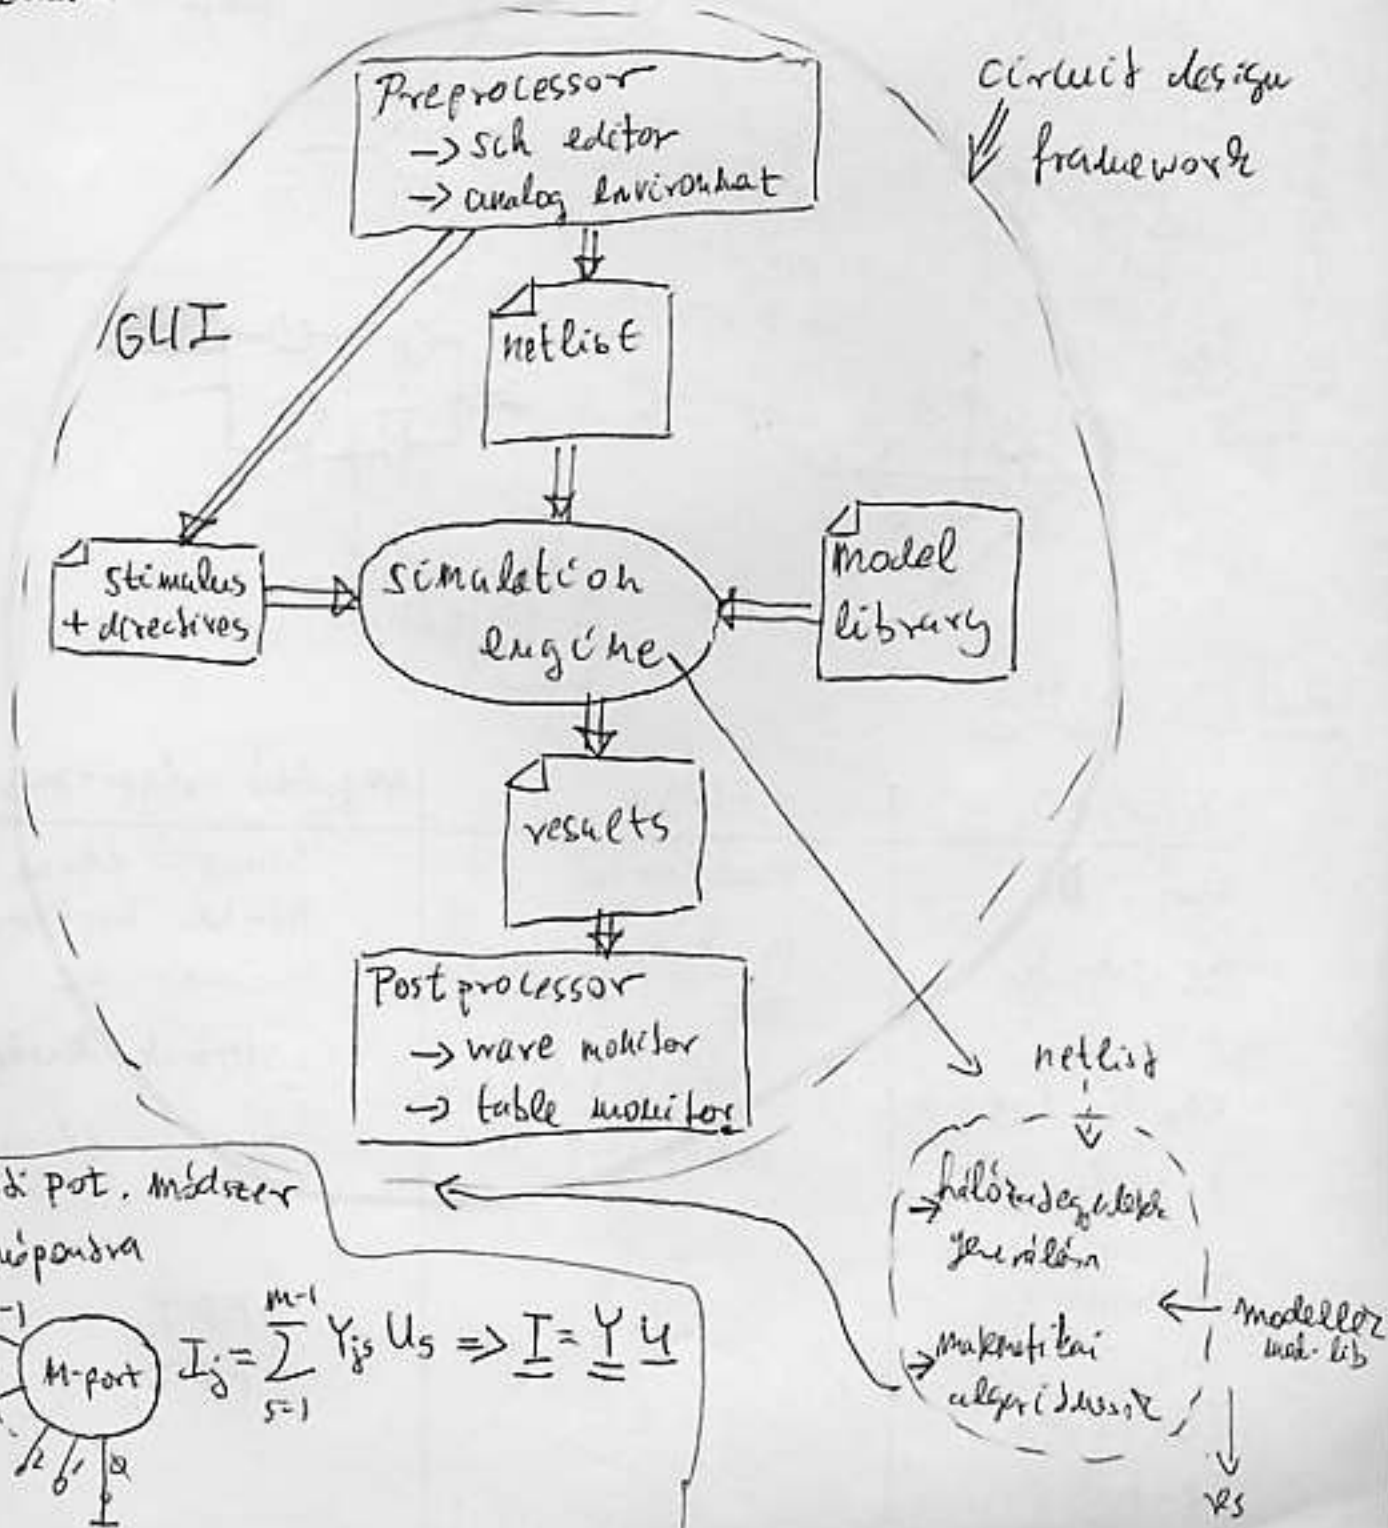 circuit design
framework
Preprocessor
→ sch editor
→ analog environmat
GUI
netlist
stimulus
+ directives
simulation
engine
model
library
results
Postprocessor
→ wave monitor
→ table monitor
netlist
→ hálózategyenletek
generálása
→ matematikai
algoritmusok
← modellek
mod-lib
res
pot. módszer
M-port
I_j = \sum_{s=1}^{m-1} Y_{js} U_s ⇒ I = Y U
2 1 0